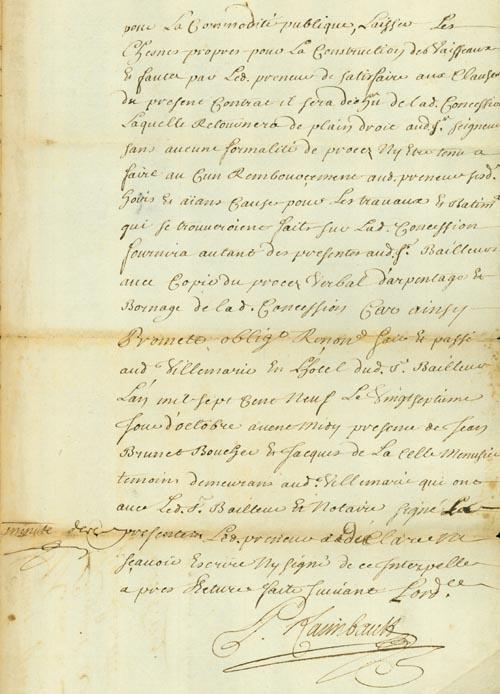 pour La Commodité publique, Laisser Les
Chesnes propres pour La Construction des Vaisseaux
Et faute par Led. preneur de Satisfaire aux Clauses
du present Contrat il sera de lad. Concession
Laquelle Retournera de plain droit aud. Sr. Seigneur
sans aucune formalité de procez Ny Etre tenu a
faire au Cun Rembourcement aud. preneur sesd.
hoirs Et aians Cause pour Les travaux Et Batimts
qui se trouveroient faits sur Lad. Concession
fournira autant des presentes aud. Sr. Bailleur
avec Copie du procez Verbal d'arpentage Et
Bornage de lad. Concession Car ainsy
Promett. oblig.t Renon.t fait Et passé
aud. Villemarie En L'hotel dud. Sr. Bailleur
L'an mil sept Cent Neuf Le Vingt septieme
Jour d'octobre avant Midy presence de Jean
Brunet Boucher Et Jacques de La Celle Menusier
temoins demeurans aud. Villemarie qui ont
avec Led. Sr. Bailleur Et Notaire signé La
minute des presentes Led. preneur a declaré Ne
sçavoir Escrire Ny signé de ce Interpellé
a pres Lecture faite suivant L'ord.ce
P. Raimbault